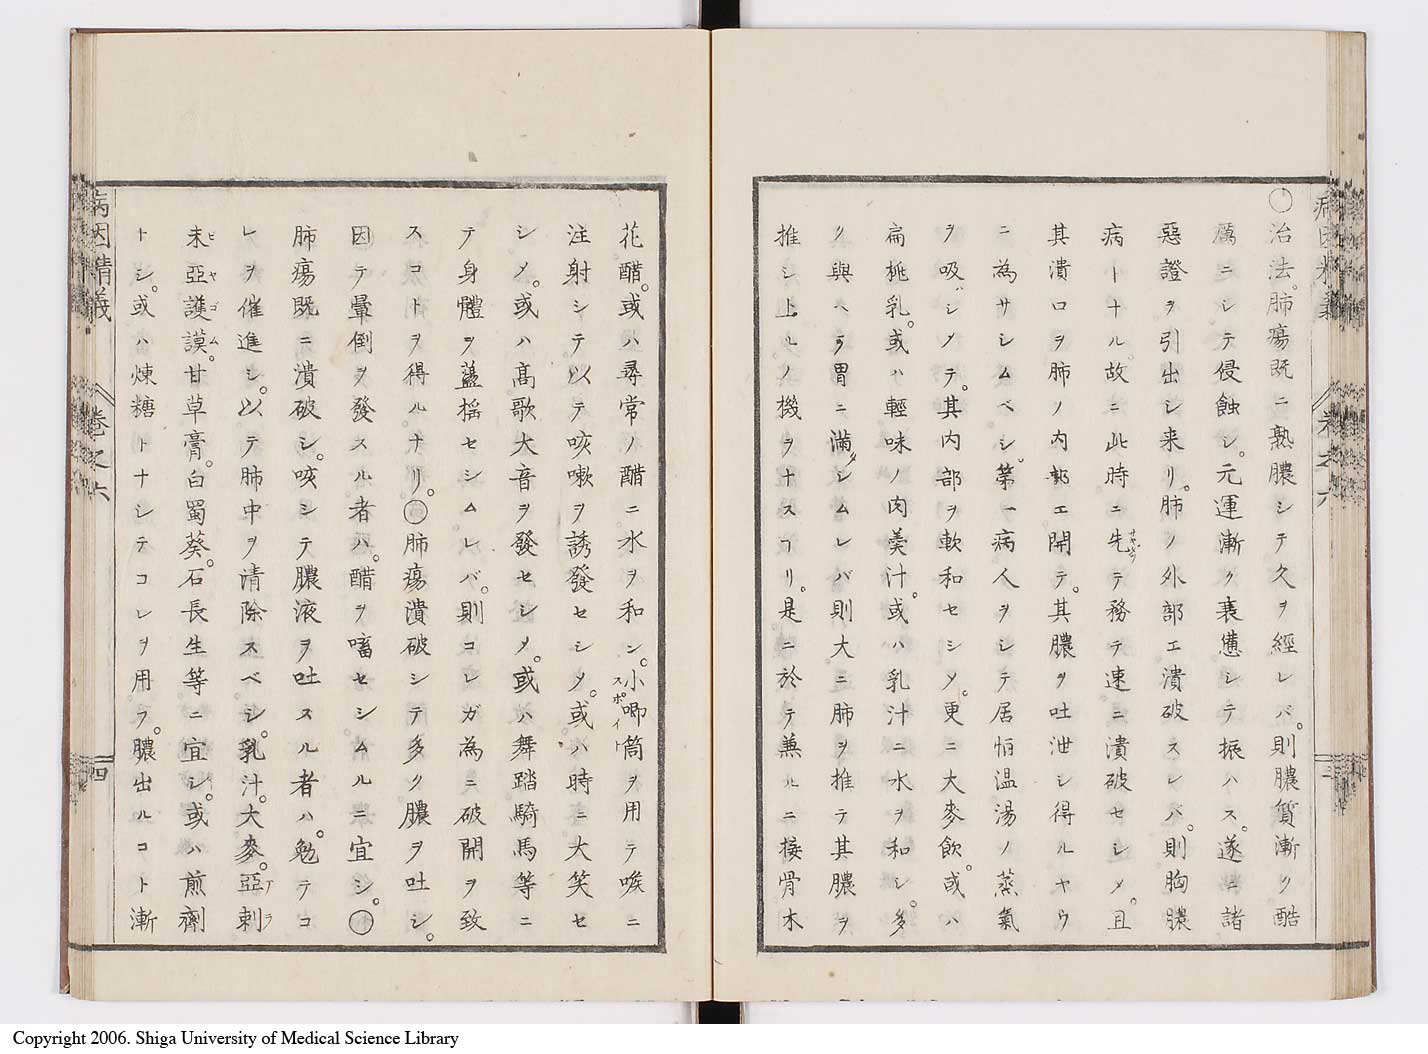 〇治法。肺瘍既ニ熟膿シテ久ヲ經レバ。則膿質漸ク酷
厲ニシテ侵蝕シ。元運漸ク衰憊シテ振ハス。遂ニ諸
惡證ヲ引出シ来リ。肺ノ外部エ潰破スレバ。則胸膿
病トナル。故ニ此時ニ先テ務テ速ニ潰破セシメ。且
其潰口ヲ肺ノ内部エ開テ。其膿ヲ吐泄シ得ルヤウ
ニ為サシムベシ。第一病人ヲシテ居恒温湯ノ蒸氣
ヲ吸ハシメテ。其内部ヲ軟和セシメ。更ニ大麥飲。或ハ
扁桃乳。或ハ輕味ノ肉羹汁。或ハ乳汁ニ水ヲ和シ。多
ク與ヘテ胃ニ満タシムレバ則大ニ肺ヲ推テ其膿ヲ
推シ上ルノ機ヲナスヿリ。是ニ於テ兼ルニ接骨木
病因精義 巻之六 三
花醋。或ハ尋常ノ醋ニ水ヲ和ン。小唧筒ヲ用テ喉ニ
スポイト
注射シテ以テ咳嗽ヲ誘發セシメ。或ハ時ニ大笑セ
シメ。或ハ高歌大音ヲ發セシメ。或ハ舞踏騎馬等ニ
テ身體ヲ盪揺セシムレバ。則コレガ為ニ破開ヲ致
スコトヲ得ルナリ。〇肺瘍潰破シテ多ク膿ヲ吐シ。
因テ暈倒ヲ發スル者ハ。醋ヲ嗅セシムルニ宜シ。〇
肺瘍既ニ潰破シ。咳シテ膿液ヲ吐スル者ハ。勉テコ
レヲ催進シ。以テ肺中ヲ清除スベシ。乳汁。大麥。亞剌
アラ
ビヤゴム
未亞護謨。甘草膏。白蜀葵。石長生等ニ宜シ。或ハ煎劑
トシ。或ハ煉糖トナシテコレヲ用フ。膿出ルコト漸
病因精義 巻之六 四
Copyright 2006. Shiga University of Medical Science Library